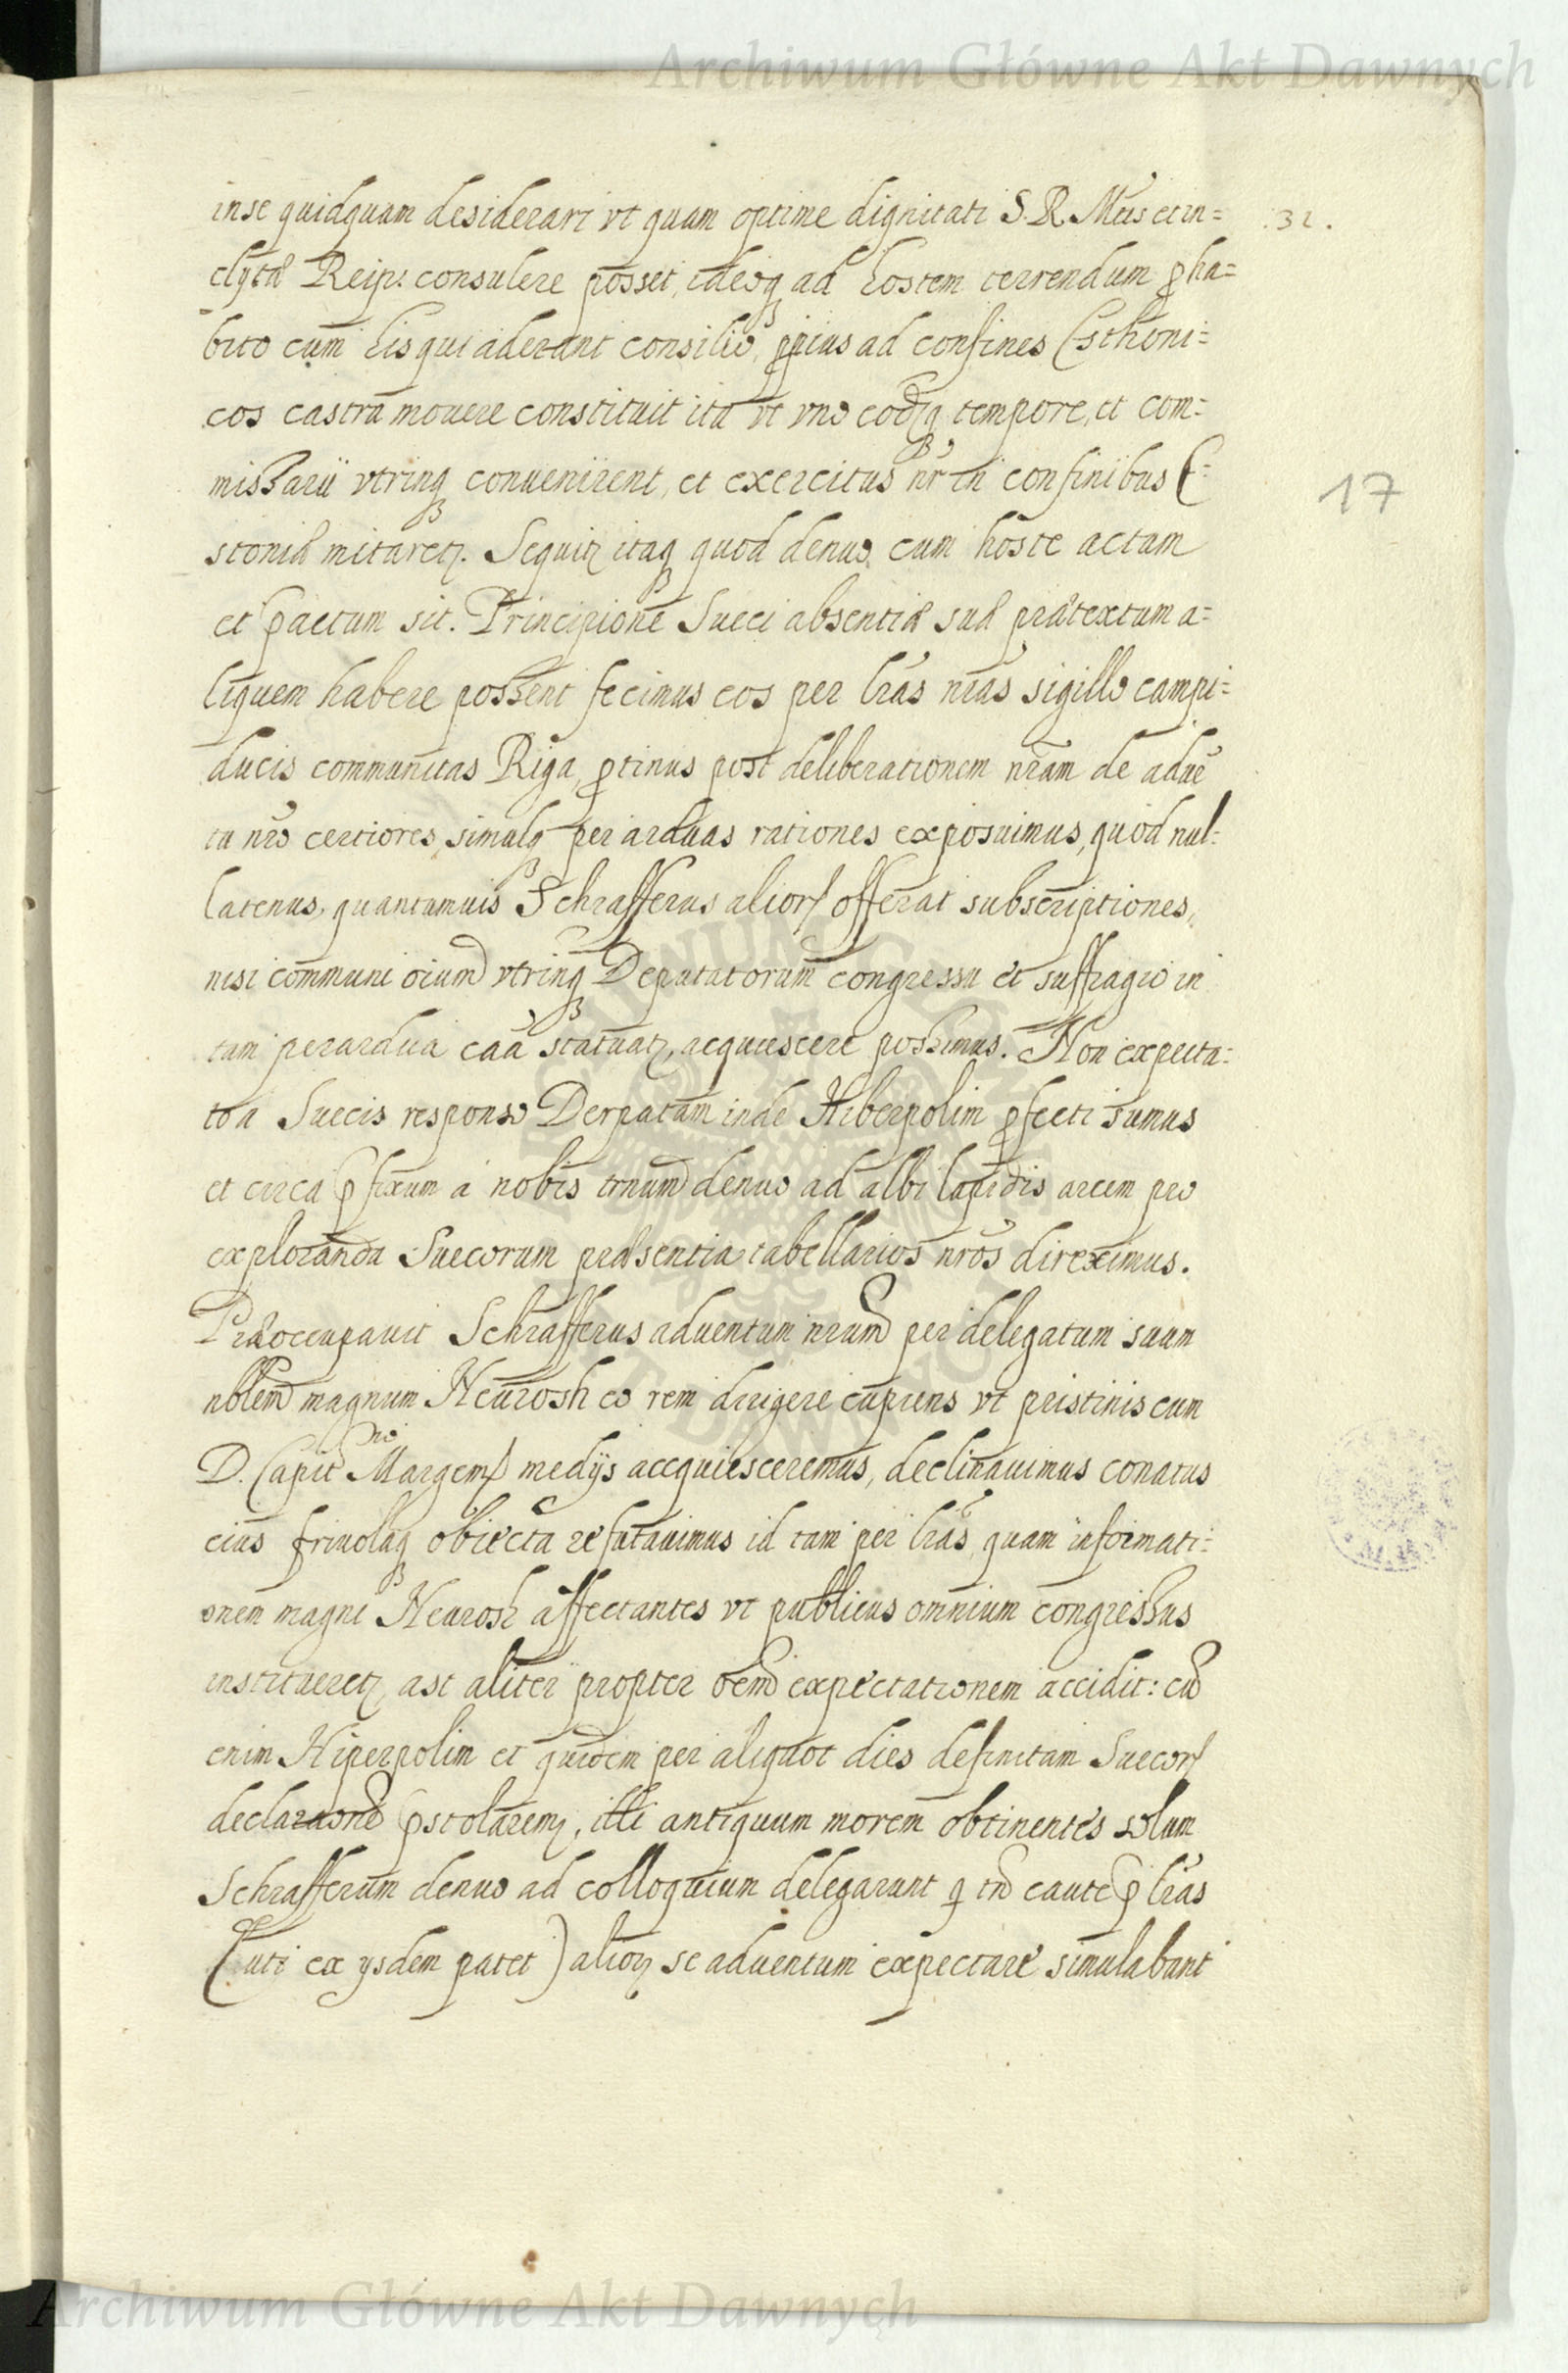 Archiwum Główne Akt Dawnych
inse quidquam desiderari vt quam optime dignitati S. R. Mtis et in=
.32.
clytæ Reip: consulere posset, ideoq ad hostem terrendum ꝓha=
bito cum his qui aderant consilio, ꝓpius ad confines Esthoni=
cos castra mouere constituit ita vt vno eodq tempore, et com=
missarii vtrinq conuenirent, et exercitus nr in confinibus E=
17
stoniæ mitaretꝛ. Sequitꝛ itaq quod denuo cum hoste actam
et pactum sit. Principio ne Sueci absentiæ suæ prætextum a=
liquem habere possent fecimus eos per lras nras sigillo campi=
ducis communitas Riga, ꝓtinus post deliberationem nram de aduē
tu nro certiores, simulq per arduas rationes exposuimus, quod nul=
latenus, quantumuis Schrafferus alioꝝ offerat subscriptiones,
nisi communi oium vtrinq Deputatorum congressu et suffragio in
tam perardua caa statuatꝛ, acquiescere possimus. Non expecta=
to a Suecis responso Derpatum inde Hiberpolim ꝓfecti sumus
et circa p̱fixum a nobis trnum denuo ad albi lapidis arcem pro
exploranda Suecorum præsentia tabellarios nros direximus.
Præoccupauit Schrafferus aduentum nrum per delegatum suum
nblem magnum Heurosh eo rem dirigere cupiens vt pristinis cum
D. Capit no Margem medijs accquiesceremus, declinauimus conatus
eius friuolaq obiecta refutauimus id tam per lras, quam informati=
onem magni Heurosh affectantes vt publicus omnium congressus
institueretꝛ, ast aliter propter oem expectationem accidit: cu
enim Hiperpolim et quidem per aliquot dies definitam Suecoꝝ
declaraone p̱stolaremꝛ, illi antiquum morem obtinentes solum
Schrafferum denuo ad colloquium delegarunt q tn caute p̱ lras
(uti ex ysdem patet) alioꝝ se aduentum expectare simulabant
Archiwum Główne Akt Dawnych